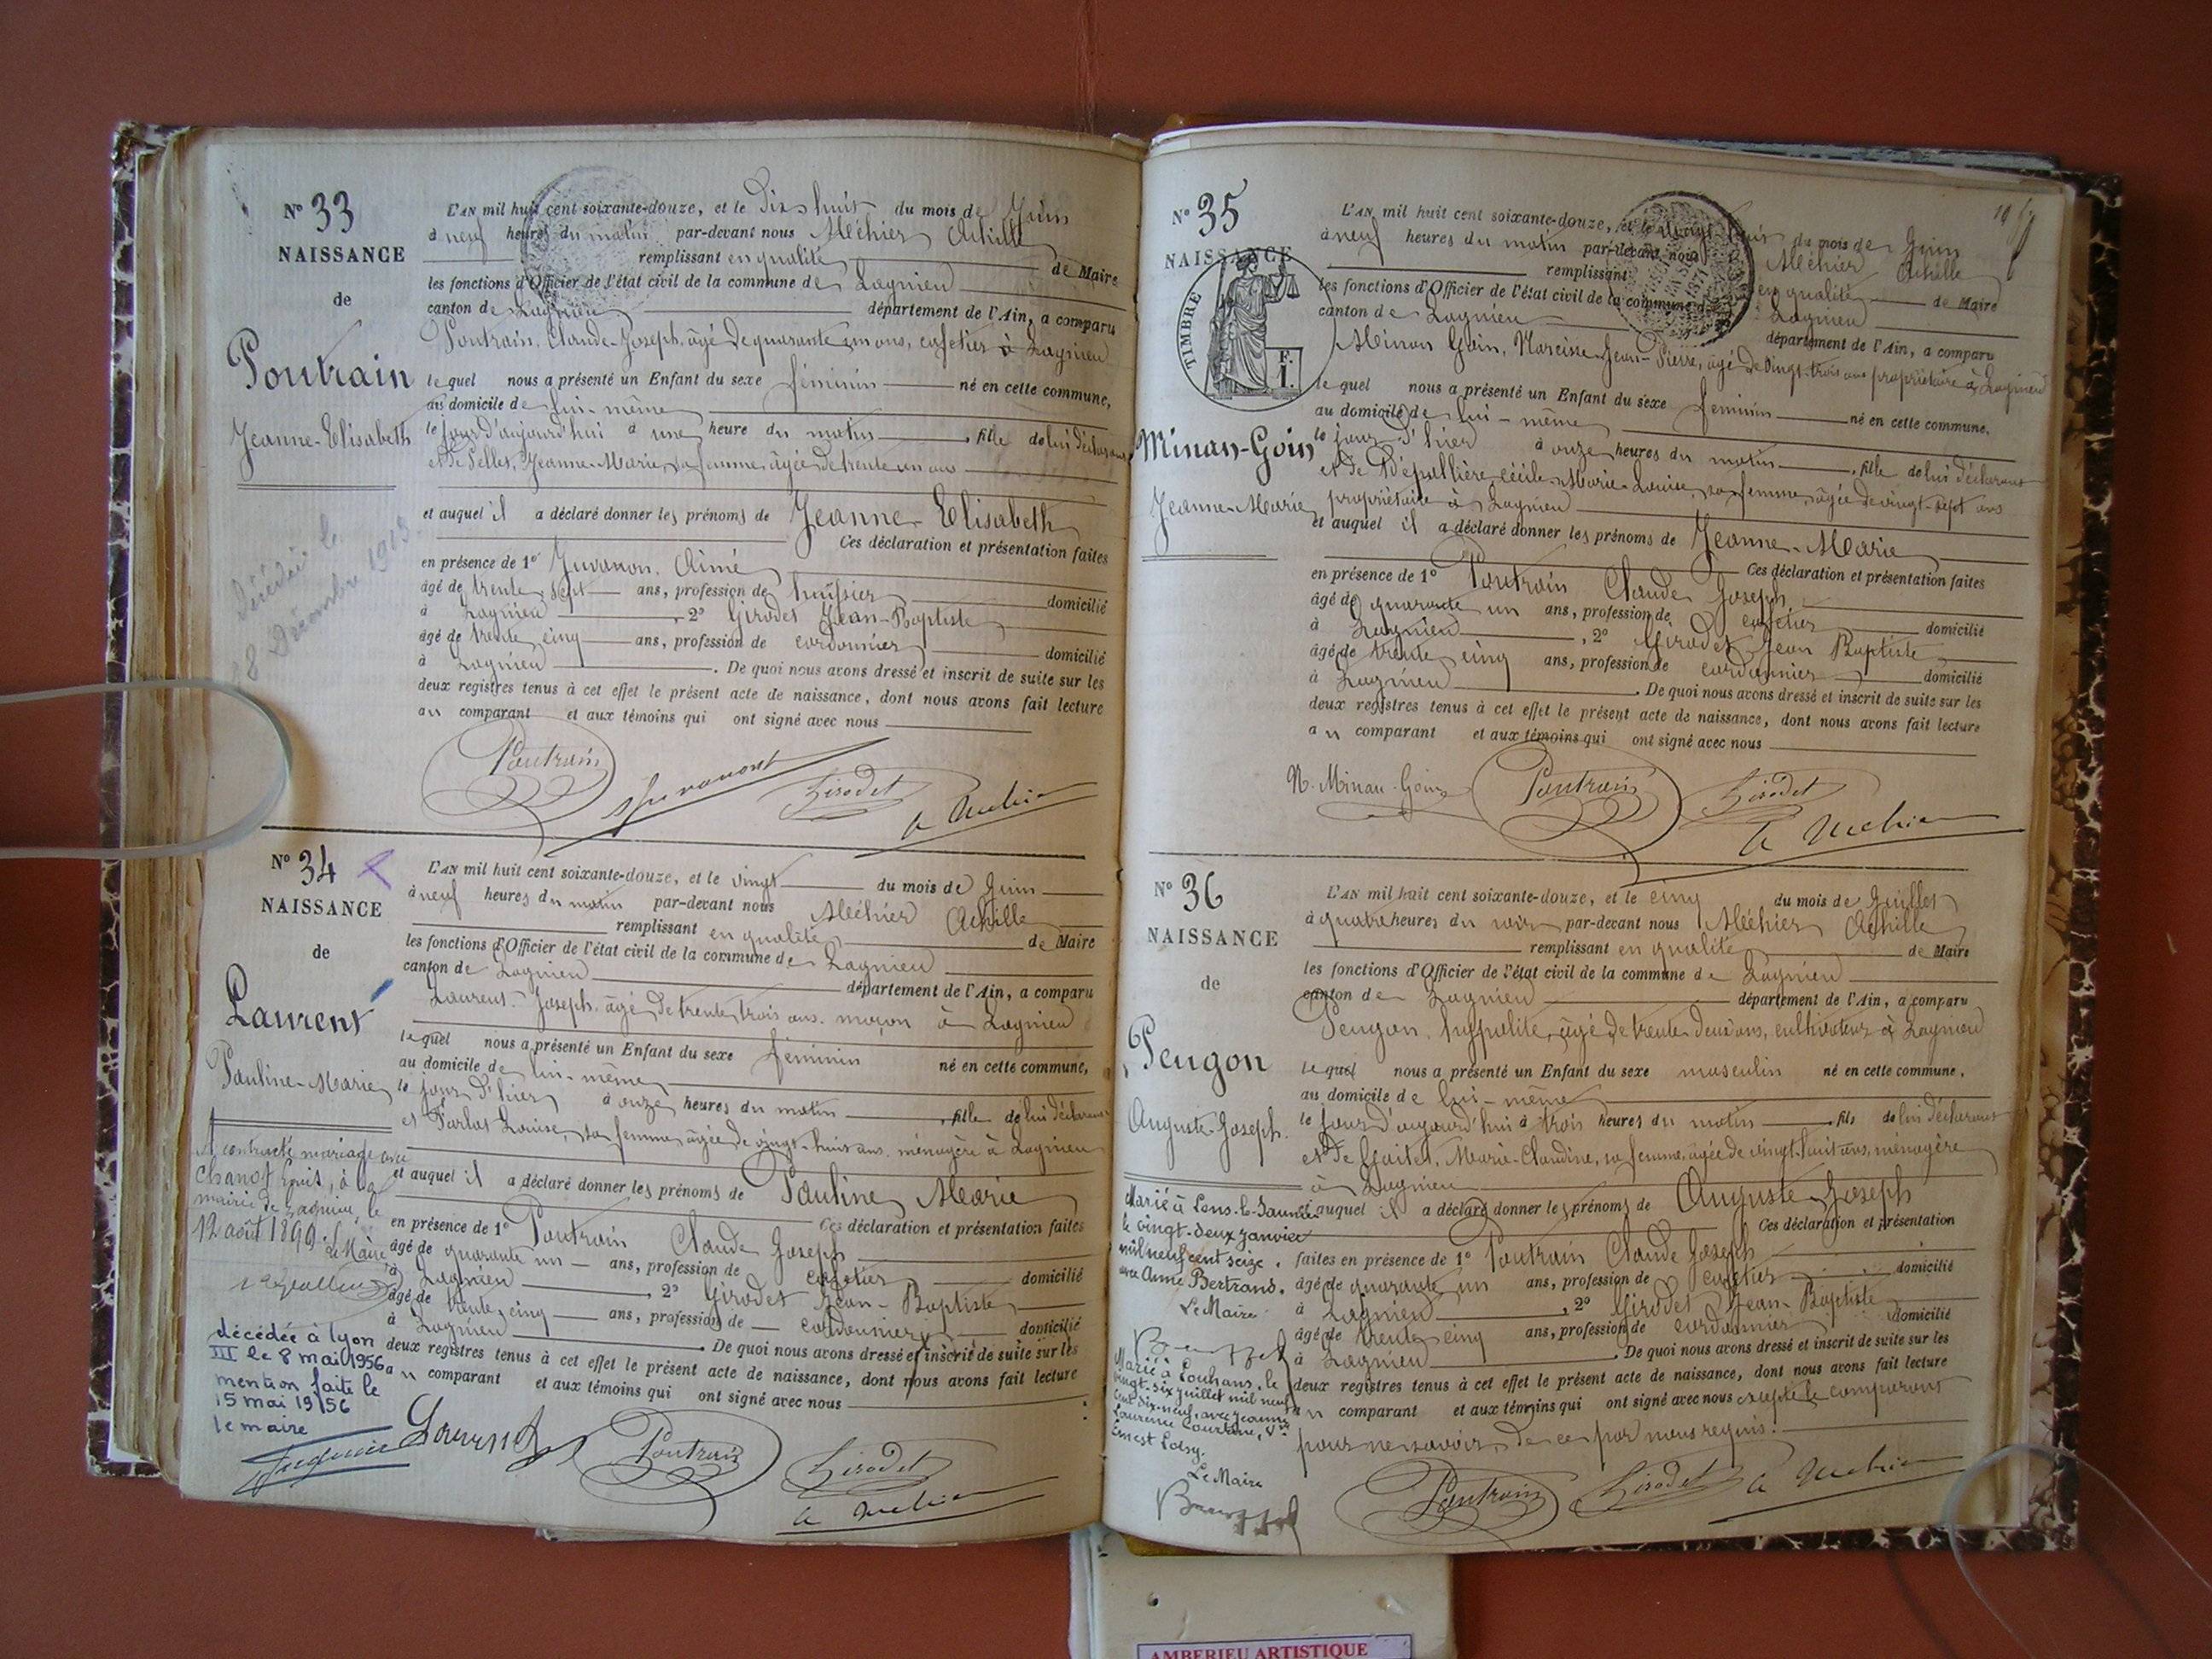 N° 33
NAISSANCE
de
Poutrain
Jeanne-Elisabeth
décédée le
18 Décembre 1915
L'AN mil huit cent soixante-douze, et le dix huit du mois de Juin
à neuf heures du matin par-devant nous Méhier Achille
remplissant en qualité de Maire
les fonctions d'Officier de l'état civil de la commune de Lagnieu
canton de Lagnieu département de l'Ain, a comparu
Poutrain, Claude-Joseph, âgé de quarante un ans, cafetier à Lagnieu
lequel nous a présenté un Enfant du sexe féminin né en cette commune,
au domicile de lui-même
le jour d'aujourd'hui à une heure du matin, fille de lui déclarant
et de Jeanne-Marie, sa femme, âgée de trente un ans
et auquel il a déclaré donner les prénoms de Jeanne-Elisabeth
Ces déclaration et présentation faites
en présence de 1° Juvanon, Aimé
âgé de trente sept ans, profession de huissier domicilié
à Lagnieu, 2° Girodet Jean-Baptiste
âgé de trente cinq ans, profession de cordonnier domicilié
à Lagnieu. De quoi nous avons dressé et inscrit de suite sur les
deux registres tenus à cet effet le présent acte de naissance, dont nous avons fait lecture
au comparant et aux témoins qui ont signé avec nous
Poutrain Juvanon Girodet A Méhier
N° 34
NAISSANCE
de
Laurent
Pauline-Marie
A contracté mariage avec
Chanot Louis, à la
mairie de Lagnieu, le
12 août 1899.
Le Maire
décédée à Lyon
III le 8 mai 1956
mention faite le
15 mai 1956
le maire
L'AN mil huit cent soixante-douze, et le vingt du mois de Juin
à neuf heures du matin par-devant nous Méhier Achille
remplissant en qualité de Maire
les fonctions d'Officier de l'état civil de la commune de Lagnieu
canton de Lagnieu département de l'Ain, a comparu
Laurent Joseph, âgé de trente trois ans, maçon à Lagnieu
lequel nous a présenté un Enfant du sexe féminin né en cette commune,
au domicile de lui-même
le jour d'hier à onze heures du matin, fille de lui déclarant
et Louise, sa femme, âgée de vingt-huit ans, ménagère à Lagnieu
et auquel il a déclaré donner les prénoms de Pauline Marie
Ces déclaration et présentation faites
en présence de 1° Poutrain Claude Joseph
âgé de quarante un ans, profession de cafetier domicilié
à Lagnieu, 2° Girodet Jean-Baptiste
âgé de trente cinq ans, profession de cordonnier domicilié
à Lagnieu. De quoi nous avons dressé et inscrit de suite sur les
deux registres tenus à cet effet le présent acte de naissance, dont nous avons fait lecture
au comparant et aux témoins qui ont signé avec nous
Laurent Poutrain Girodet
A Méhier
N° 35
NAISSANCE
TIMBRE
F.
1.
Minan-Goin
Jeanne-Marie
L'AN mil huit cent soixante-douze, et le vingt huit du mois de Juin
à neuf heures du matin par-devant nous Méhier Achille
remplissant en qualité de Maire
les fonctions d'Officier de l'état civil de la commune de Lagnieu
canton de Lagnieu département de l'Ain, a comparu
Minan Goin, Narcisse Jean-Pierre, âgé de vingt-trois ans propriétaire à Lagnieu
lequel nous a présenté un Enfant du sexe féminin né en cette commune,
au domicile de lui-même
le jour d'hier à onze heures du matin, fille de lui déclarant
et de Cécile-Marie-Louise, sa femme, âgée de vingt-sept ans
propriétaire à Lagnieu
et auquel il a déclaré donner les prénoms de Jeanne-Marie
Ces déclaration et présentation faites
en présence de 1° Poutrain Claude Joseph
âgé de quarante un ans, profession de cafetier domicilié
à Lagnieu, 2° Girodet Jean Baptiste
âgé de trente cinq ans, profession de cordonnier domicilié
à Lagnieu. De quoi nous avons dressé et inscrit de suite sur les
deux registres tenus à cet effet le présent acte de naissance, dont nous avons fait lecture
au comparant et aux témoins qui ont signé avec nous
N. Minan-Goin Poutrain Girodet
A Méhier
N° 36
NAISSANCE
de
Peugon
Auguste-Joseph
Marié à Lons-le-Saunier
le vingt-deux janvier
mil neuf cent seize,
avec Anne Bertrand.
Le Maire
Marié à Louhans, le
vingt-six juillet mil neuf
cent dix-neuf, avec Jeanne
Laurence Vve
Ernest
Le Maire
L'AN mil huit cent soixante-douze, et le cinq du mois de Juillet
à quatre heures du soir par-devant nous Méhier Achille
remplissant en qualité de Maire
les fonctions d'Officier de l'état civil de la commune de Lagnieu
canton de Lagnieu département de l'Ain, a comparu
Peugon, hyppolite, âgé de trente deux ans, cultivateur à Lagnieu
lequel nous a présenté un Enfant du sexe masculin né en cette commune,
au domicile de lui-même
le jour d'aujourd'hui à trois heures du matin, fils de lui déclarant
et de Marie-Claudine, sa femme, âgée de vingt-huit ans, ménagère
à Lagnieu
et auquel il a déclaré donner les prénoms de Auguste-Joseph
Ces déclaration et présentation
faites en présence de 1° Poutrain Claude Joseph
âgé de quarante un ans, profession de cafetier domicilié
à Lagnieu, 2° Girodet Jean-Baptiste
âgé de trente cinq ans, profession de cordonnier domicilié
à Lagnieu. De quoi nous avons dressé et inscrit de suite sur les
deux registres tenus à cet effet le présent acte de naissance, dont nous avons fait lecture
au comparant et aux témoins qui ont signé avec nous excepté le comparant
pour ne savoir, de ce par nous requis.
Poutrain Girodet A Méhier
AMBERIEU ARTISTIQUE